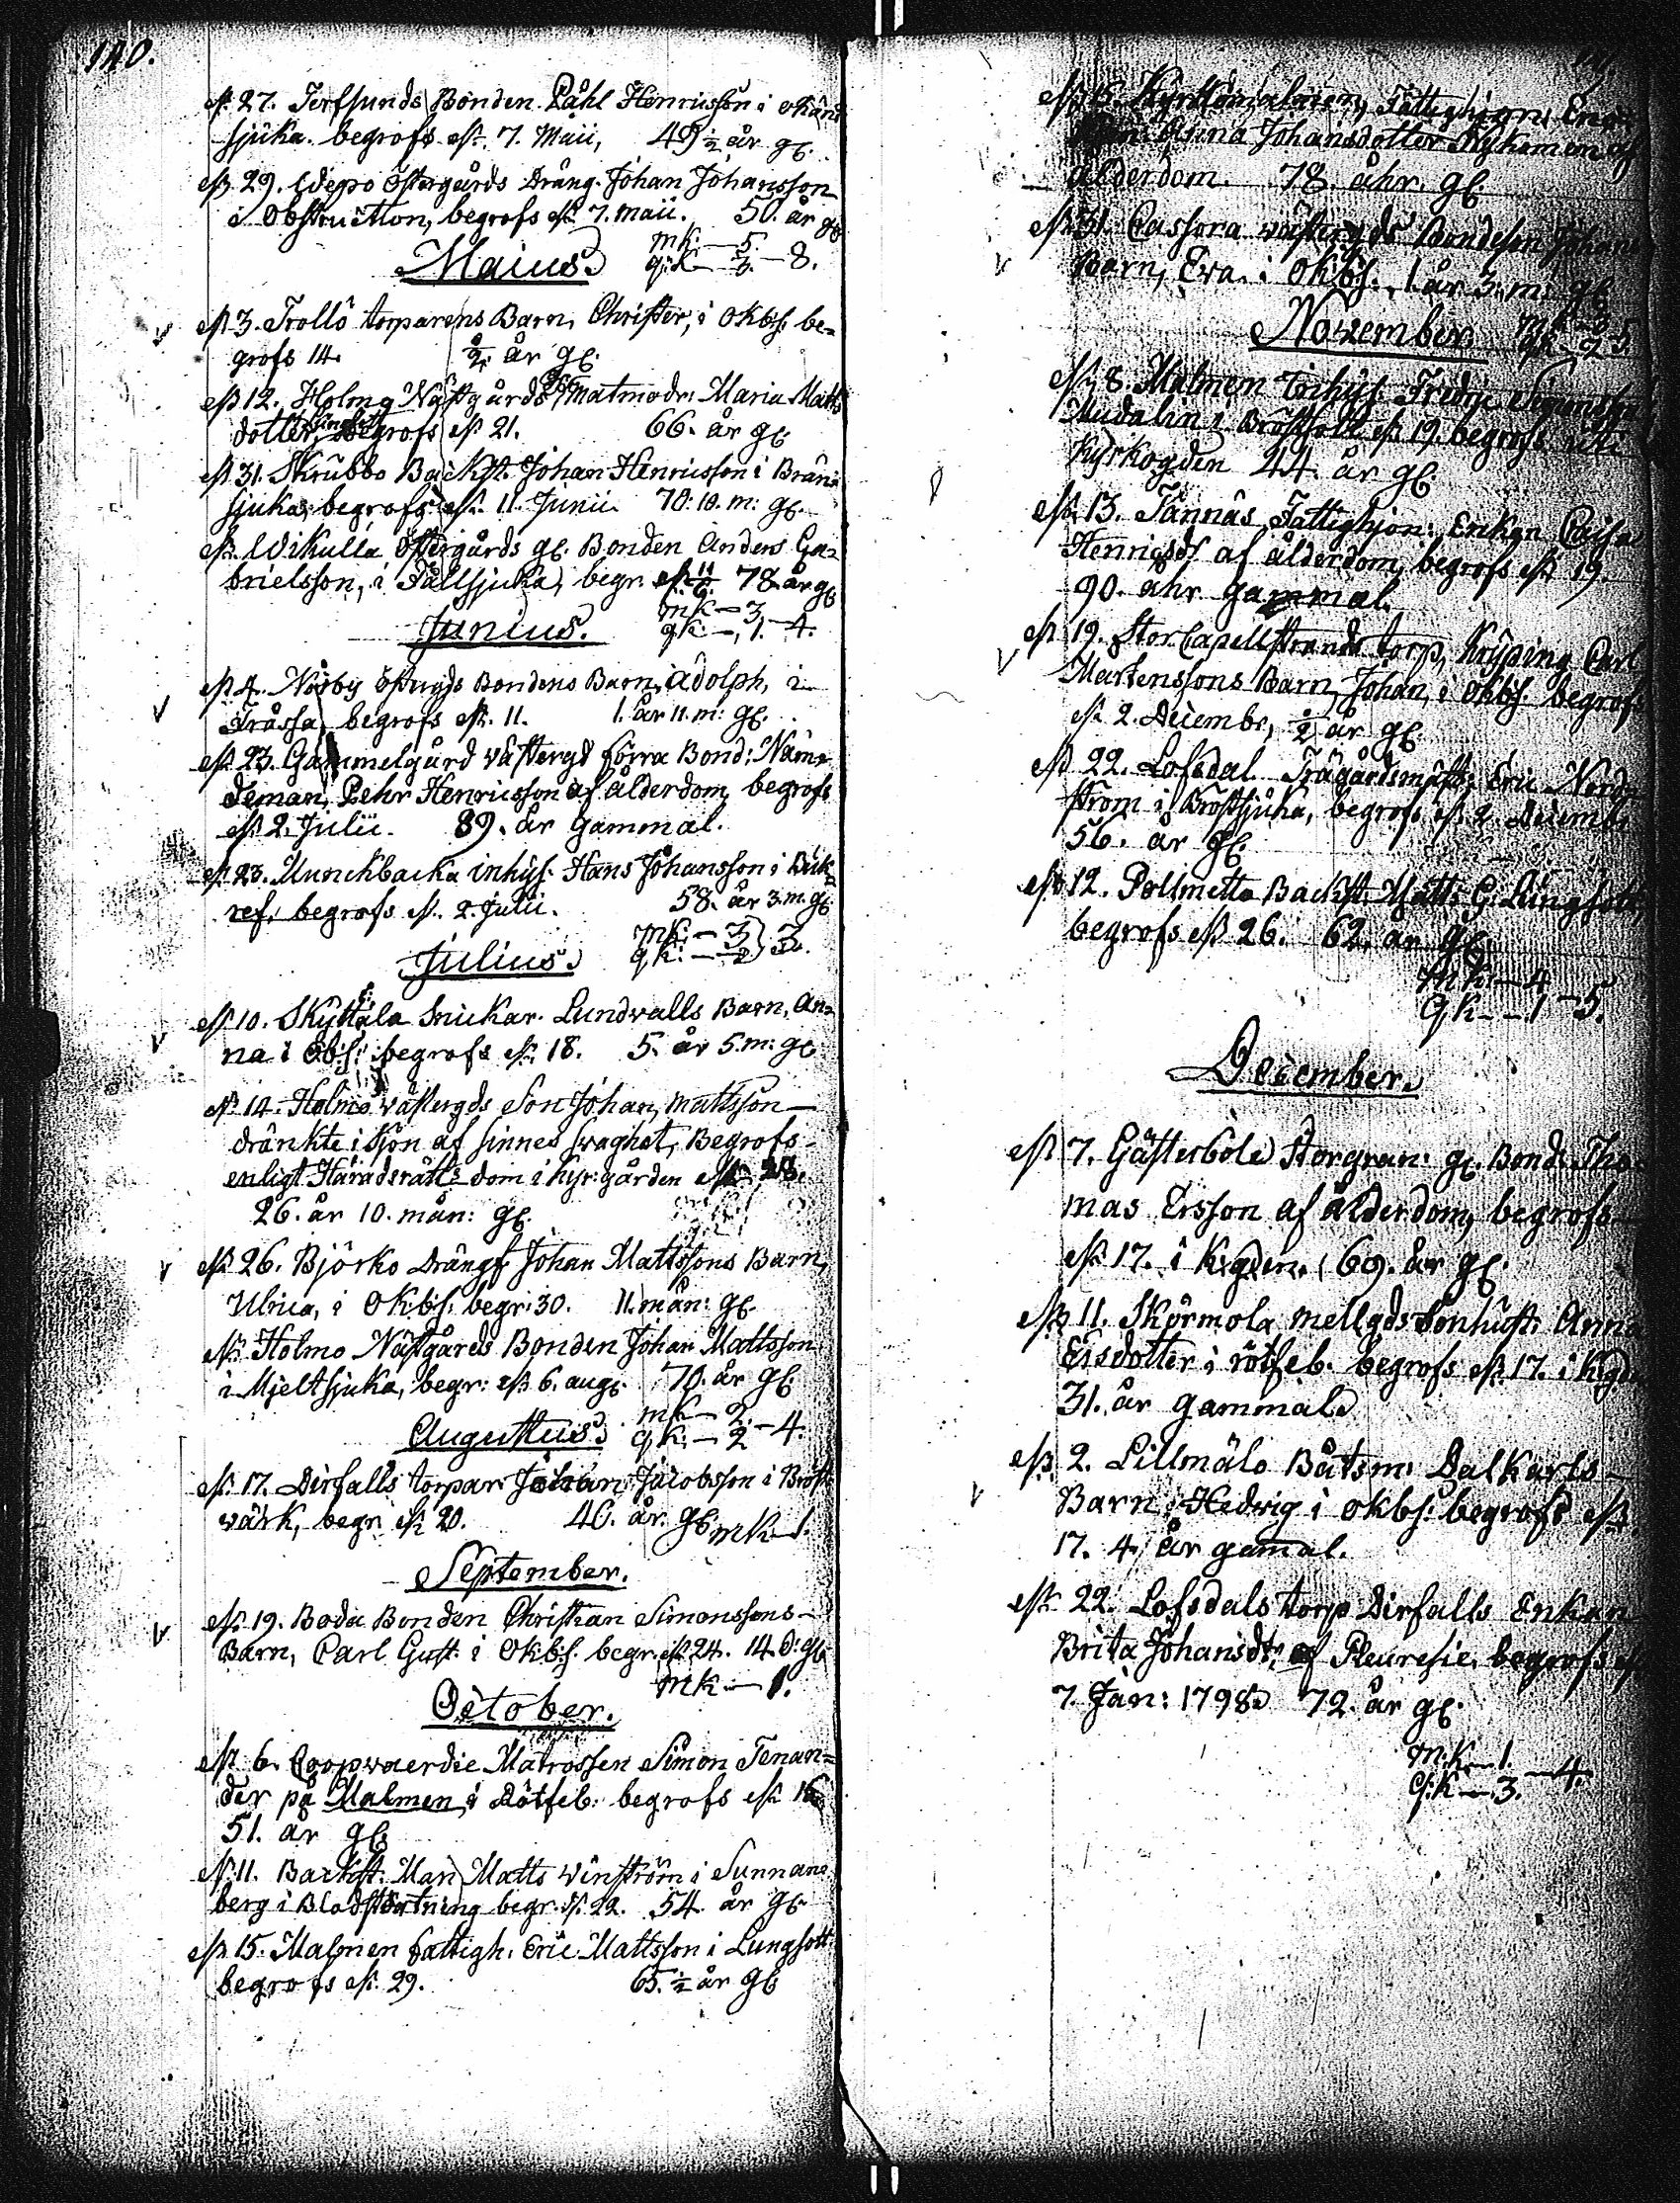 140.
d: 27. Jerfsunds Bonden Påhl Henricsson i okänd
sjuka. begrofs d: 7. Maii, 49 ½ år gl.
d: 29. Degrö Östergårds Dräng. Johan Johansson
i Obstruction, begrofs d: 7. maii. 50. år gl
mk: – 5.
qk – 3. – 8.
Maius.
d: 3. Trollö torparens Barn, Christer, i Okb:s. be-
grofs 14. ½ år gl.
d: 12. Holmo Näsgårds matmodr: Maria Matts
dotter, begrofs d: 21. 66. år gl
d: 31. Skrubbo Backst. Johan Henricsson i Brän
sjuka, begrofs d: 11. Junii. 70: 10. m: gl.
d: Wikulla Östergårds gl. Bonden Anders Ga-
brielsson, i Fallsjuka, begr. d: 11/6. 78 år gl
mk – 3
qk – 1. – 4.
Junius.
d: 4. Norby Östergds Bondens Barn, Adolph, i
Trässa, begrofs d: 11. 1. år 11. m: gl.
d: 23. Gammelgård Västergd förra Bond: Näm-
deman, Pehr Henricsson af ålderdom, begrofs
d: 2. Julii. 89. år gammal.
d: 23. Munckbacka inhys. Hans Johansson i Buk-
ref, begrofs d: 2. Julii. 58. år 3. m. gl
mk: – 3
qk: – 3.
Julius.
d: 10. Skyttåla Snickar. Lundvalls Barn, An-
na i Obs: begrofs d: 18. 5. år 5. m: gl
d: 14. Holmo västergds Son Johan, Mattsson
dränkte i Sjön af sinnes svaghet, Begrofs
enligt Häradsrätts dom i kyr:gården d: 28.
26. år 10. mån: gl.
d: 26. Björkö Drängs Johan Mattssons Barn,
Ulrica, i Okb:s: begr: 30. 11. mån: gl.
d: Holmo Näsgårds Bonden Johan Mattsson
i Mjeltsjuka, begr: d: 6. aug. 70. år gl
mk – 2.
qk – 2 – 4.
Augustus.
d: 17. Dirfalls torpar Johan Jacobsson i Bröst
wärk, begr: d: 20. 46. år. gl. mk – 1.
September.
d: 19. Boda Bonden Christian Simonssons
Barn, Carl Gust. i Okb:s. begr. d: 24. 14. d: gl
mk – 1.
October.
d: 6. Coopvaerdie Matrossen Simon Tenan-
der på Malmen, i Rötfeb: begrofs d: 16
51. år gl.
d: 11. Backst: Man Matts Winström i Sunnans
berg i Blodstörtning begr. d: 22. 54. år gl.
d: 15. Malmen fattigh. Eric Mattsson i Lungsott
begrofs d: 29. 65. ½ år gl
d: 15. Fattighjon: Enk
Johansdotter af
ålderdom. 78. åhr. gl.
d: 31. Bondeson Johan
Barn, Eva i Okb:s. 1. år 3. m. gl
November. 5.
d: 8. Malmen Inhys. Fredric Simonss
i Bröstsott d: 19. begrofs
kyrkogden 44. år gl.
d: 13. Tännäs Fattighjon: Enkan Caisa
Henricsd: af ålderdom, begrofs d: 19.
90. ahr gammal.
d: 19. Storcapellstrands torp, Kryping Carl
Martenssons Barn, Johan, i Okb:s. begrofs
d: 2. Decembr, ½ år gl.
d: 22. Lofsdal Trägårdsmäst: Eric Nord-
ström i Bröstsjuka, begrofs d: 2 Decemb:
56. år gl.
d: 12. Pellmetta Backst. Matts G: Lungsott,
begrofs d: 26. 62. år gl.
mk – 4
qk – 1 – 5.
December.
d: 7. Gästerböle Storgran: gl. Bond: Tho-
mas Ersson af ålderdom, begrofs
d: 17. i K:gden. 69. år gl.
d: 11. Skärmola mellgds Sonhust: Anna
Ersdotter i rötfeb. begrofs d: 17. i k:gd
31. år gammal.
d: 2. Lillmälo Båtsm: Dalkarls
Barn: Hedvig i okbs: begrofs d:
17. 4. år gamal.
d: 22. Lofsdals torp Dirfalls Enkan
Brita Johansdt: af Pleuresie, begrofs d:
7. Jan: 1798. 72. år gl.
m.k – 1.
q.k – 3. – 4.